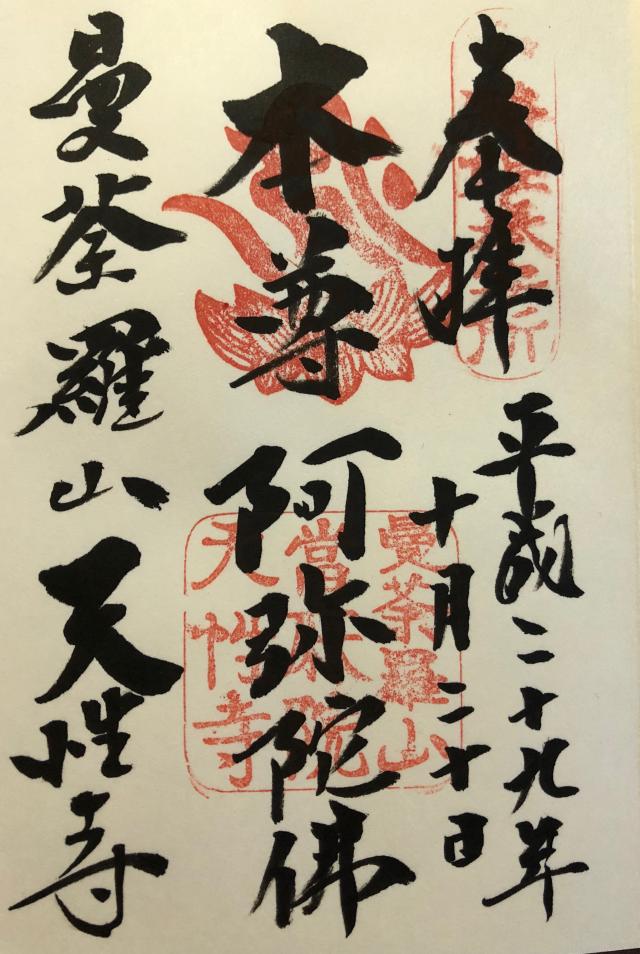 奉拝
平成二十九年
十月二十日
本尊
阿弥陀佛
曼荼羅山天性寺
曼荼羅山
當麻院
天性寺